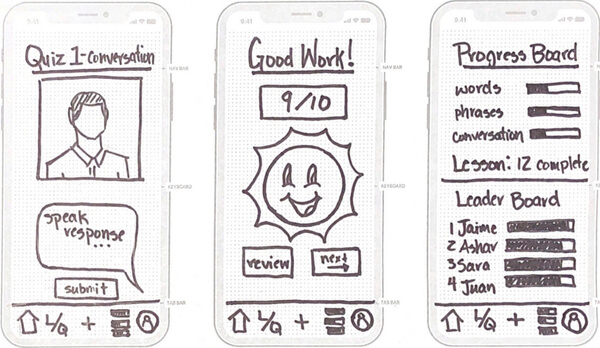 9:41
Quiz 1-conversation
NAV BAR
KEYBOARD
speak
response
...
submit
TAB BAR
L/Q
9:41
Good Work!
NAV BAR
9/10
KEYBOARD
review
next
TAB BAR
L/Q
9:41
Progress Board
words
phrases
conversation
Lesson: 12 complete
Leader Board
1 Jaime
2 Ashar
3 Sara
4 Juan
L/Q